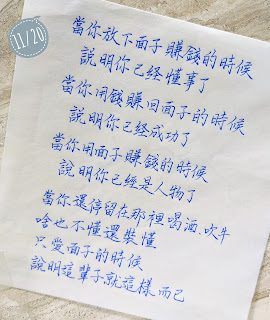 11/20
當你放下面子賺錢的時候
說明你已經懂事了
當你用錢賺回面子的時候
說明你已經成功了
當你用面子賺錢的時候
說明你已經是人物了
當你還停留在那裡喝酒、吹牛
啥也不懂還裝懂
只愛面子的時候
說明這輩子就這樣而已